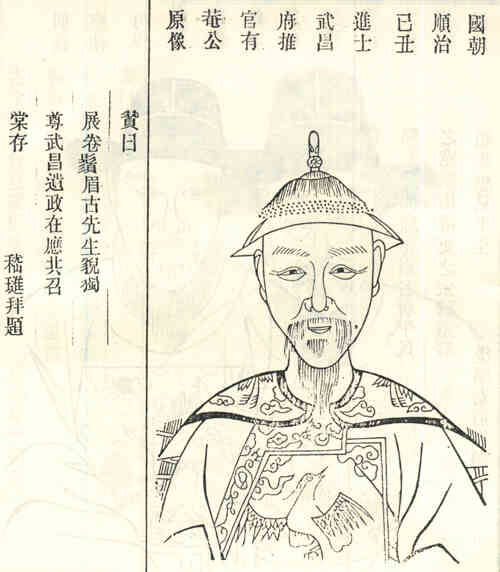 國朝
順治
已丑
進士
武昌
府推
官有
菴公
原像
贊曰
展卷鬚眉古先生貌獨
尊武昌遺政在應共召
棠存　嵇璡拜題